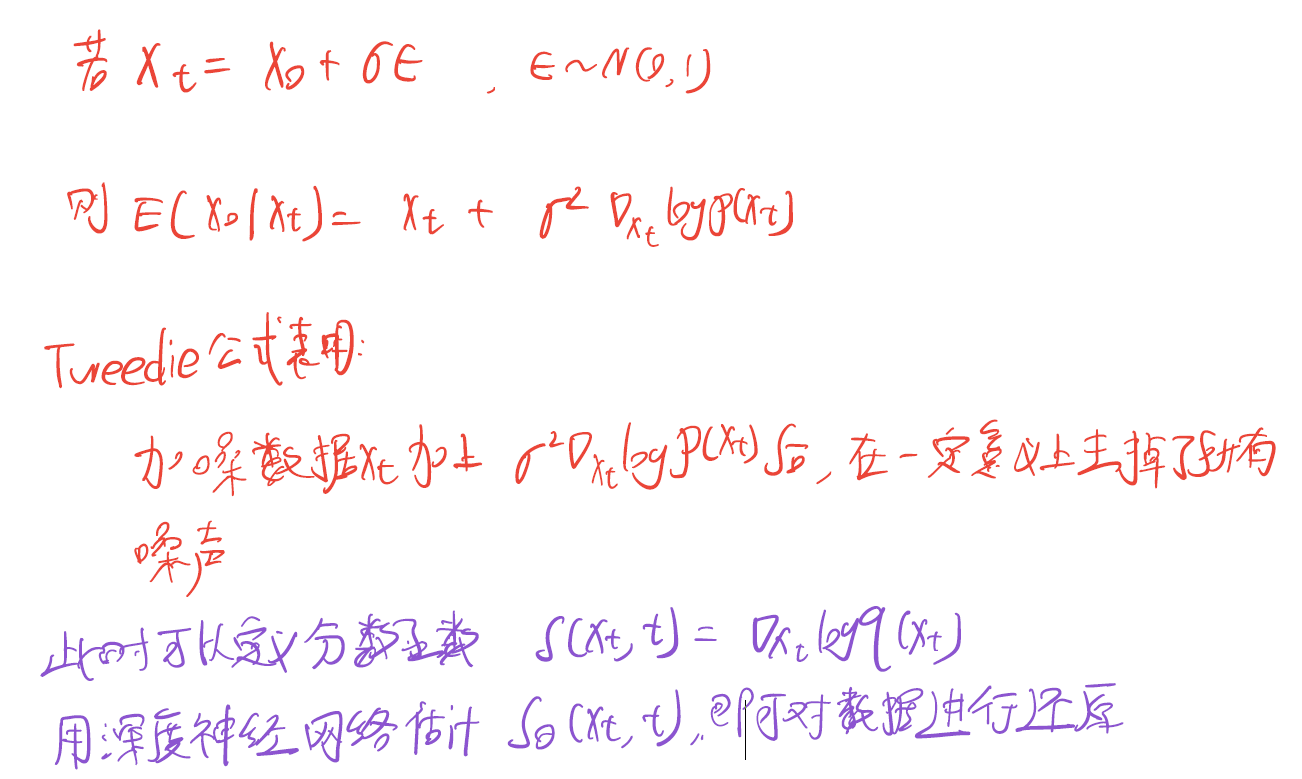 若 Xₜ = X₀ + σϵ , ϵ ~ N(0, 1)
则 E(X₀|Xₜ) = Xₜ + σ² ∇ₓₜ log p(xₜ)
Tweedie公式表明:
加噪数据xₜ加上 σ²∇ₓₜ log p(xₜ)后, 在一定意义上去掉了所有
噪声
此时可以定义分数函数 S(xₜ, t) = ∇xₜ log q(xₜ)
用深度神经网络估计 Sθ(xₜ, t), 即可对数据进行还原